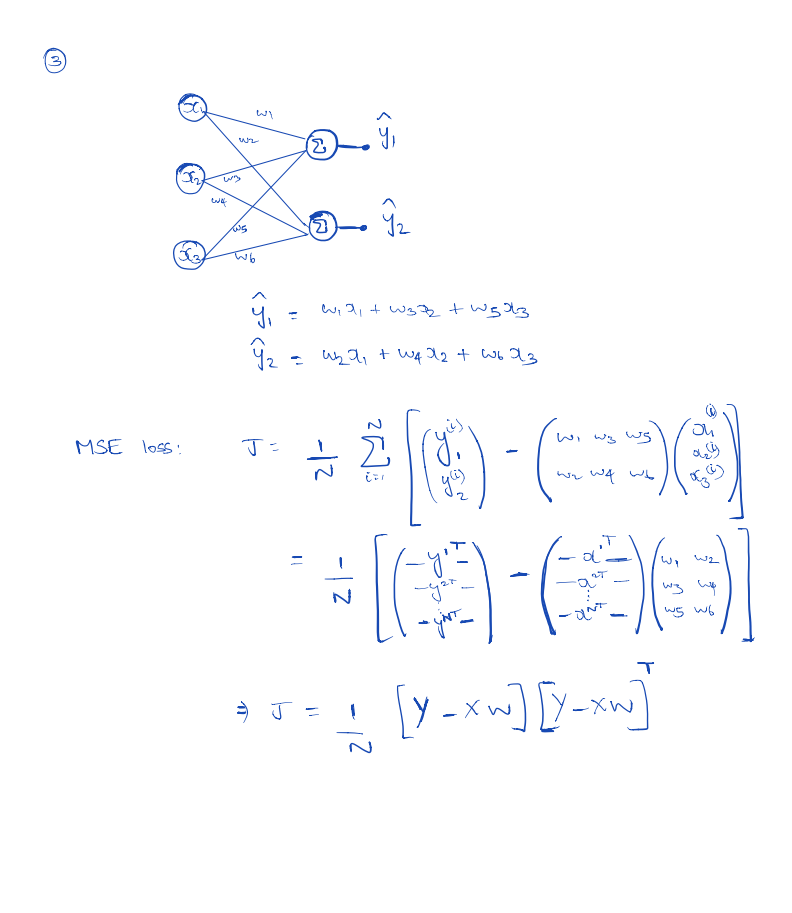 3
x₁ w1 ŷ₁
w2 Σ
x₂ w3
w4 Σ ŷ₂
w5
x₃ w6
ŷ₁ = w₁x₁ + w₃x₂ + w₅x₃
ŷ₂ = w₂x₁ + w₄x₂ + w₆x₃
MSE loss: J = 1/N Σ_{i=1}^{N} [ ( y₁⁽ⁱ⁾ ; y₂⁽ⁱ⁾ ) - ( w₁ w₃ w₅ ; w₂ w₄ w₆ ) ( x₁⁽ⁱ⁾ ; x₂⁽ⁱ⁾ ; x₃⁽ⁱ⁾ ) ]
= 1/N [ ( - y^{1T} - ; - y^{2T} - ; ⋮ ; - y^{NT} - ) - ( - x^{1T} - ; - x^{2T} - ; ⋮ ; - x^{NT} - ) ( w₁ w₂ ; w₃ w₄ ; w₅ w₆ ) ]
⇒ J = 1/N [Y - XW] [Y - XW]ᵀ